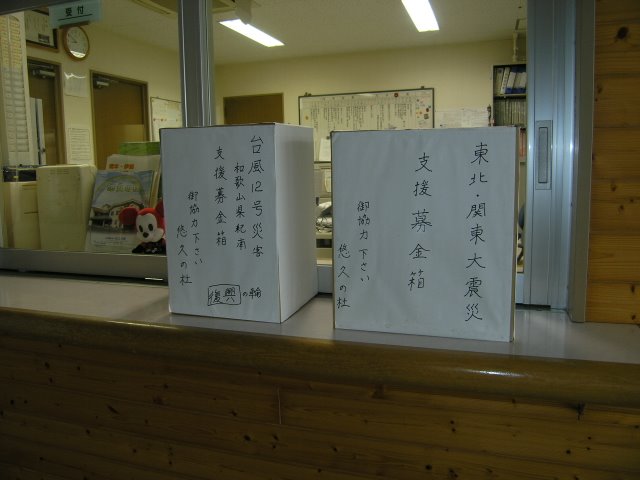 受付
台風12号災害
和歌山県紀南
支援募金箱
御協力下さい
悠久の杜
復興の輪
東北・関東大震災
支援募金箱
御協力下さい
悠久の杜